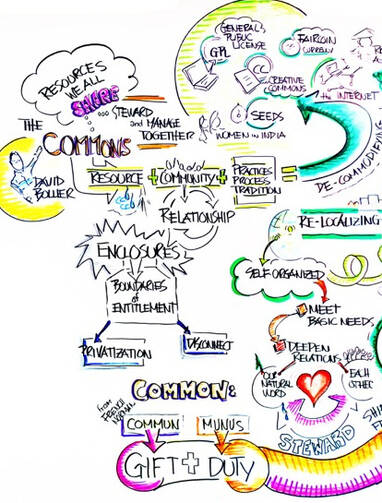 RESOURCES
WE ALL
SHARE
... STEWARD
and MANAGE
TOGETHER
THE
COMMONS
DAVID
BOLLIER
RESOURCE + COMMUNITY + PRACTICES
PROCESS
TRADITION
RELATIONSHIP
ENCLOSURES
BOUNDARIES
of
ENTITLEMENT
PRIVATIZATION
DISCONNECT
GENERAL
PUBLIC
LICENSE
GPL
FAIRCOIN
CURRENCY
CC
CREATIVE
COMMONS
the INTERNET
SEEDS
WOMEN IN INDIA
DE-COMMODIFYING
RE-LOCALIZING
SELF ORGANIZED
MEET
BASIC NEEDS
DEEPEN
RELATIONS
OUR
NATURAL
WORLD
EACH
OTHER
STEWARD
COMMON:
from
COMMUN
MUNUS
GIFT + DUTY